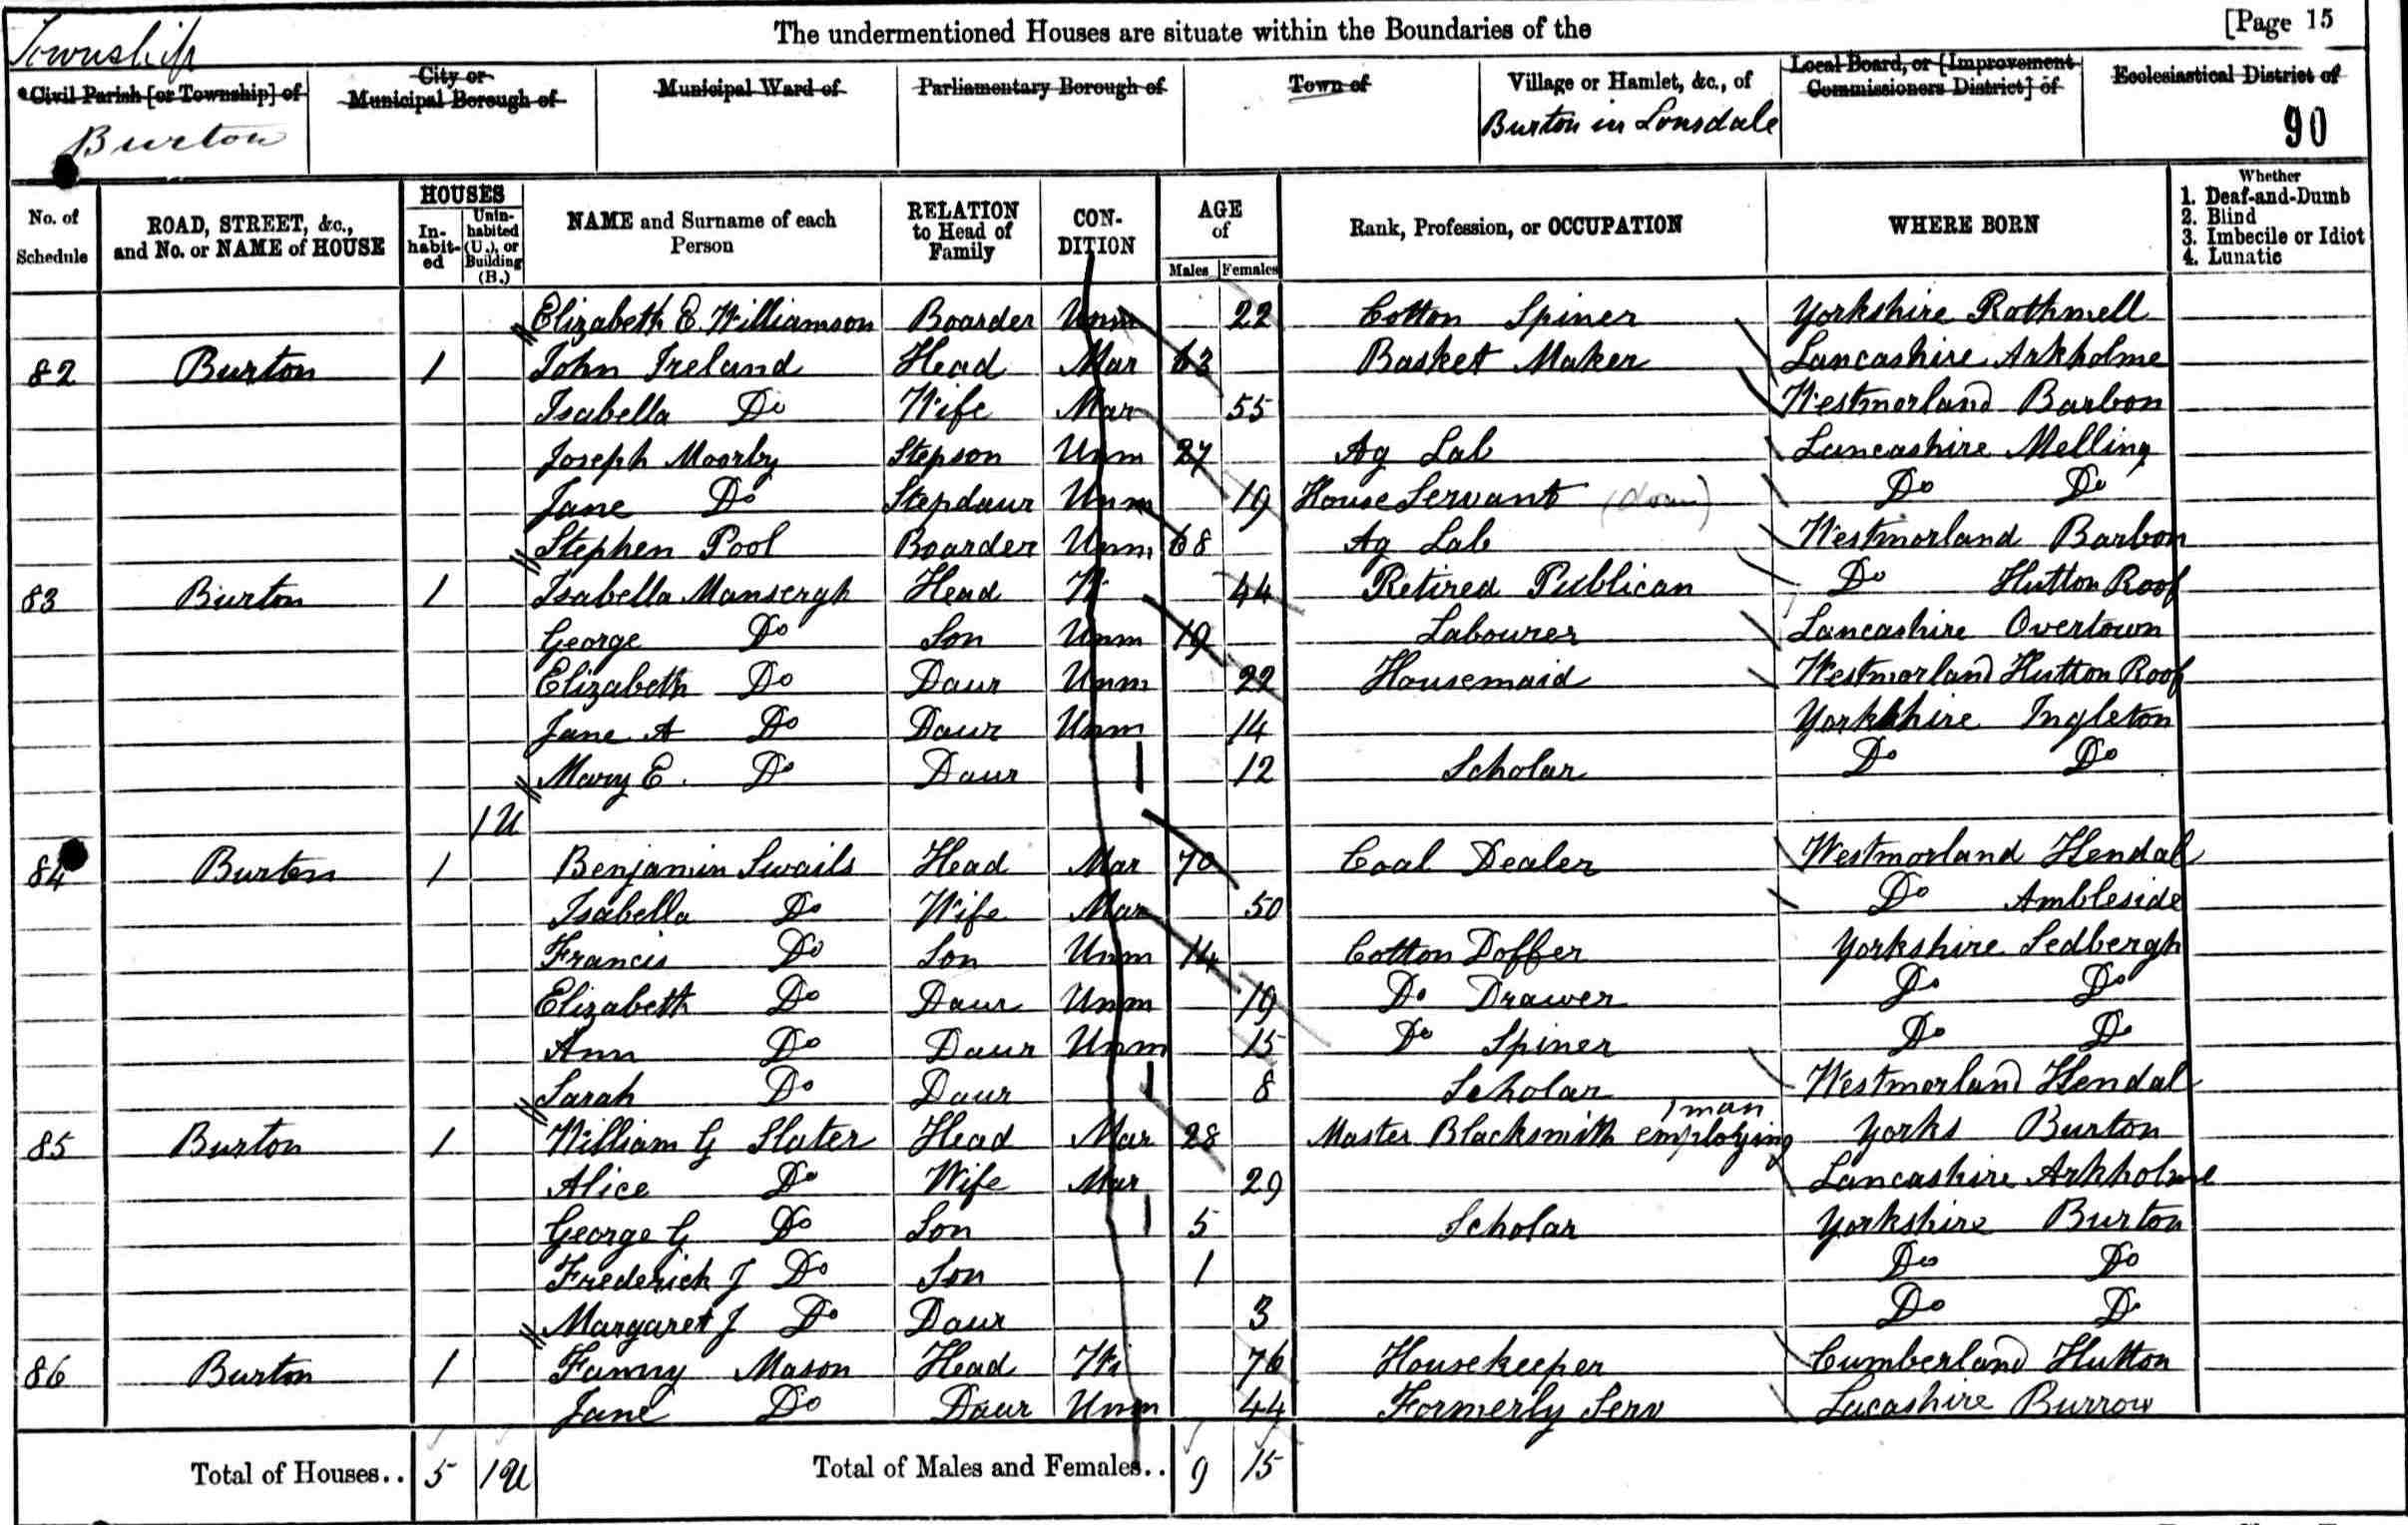 The undermentioned Houses are situate within the Boundaries of the [Page 15
Township
Civil Parish [or Township] of City or Municipal Borough of Municipal Ward of Parliamentary Borough of Town of Village or Hamlet, &c., of Local Board, or [Improvement Commissioners District] of Ecclesiastical District of
Burton Burton in Lonsdale 90
No. of Schedule ROAD, STREET, &c., and No. or NAME of HOUSE HOUSES Inhabit-ed Unin-habited (U.), or Building (B.) NAME and Surname of each Person RELATION to Head of Family CON-DITION AGE of Males Females Rank, Profession, or OCCUPATION WHERE BORN Whether 1. Deaf-and-Dumb 2. Blind 3. Imbecile or Idiot 4. Lunatic
Elizabeth E. Williamson Boarder Unm 22 Cotton Spiner Yorkshire Rothmell
82 Burton 1 John Ireland Head Mar 63 Basket Maker Lancashire Arkholme
Isabella Do Wife Mar 55 Westmorland Barbon
Joseph Moorby Stepson Unm 27 Ag Lab Lancashire Melling
Jane Do Stepdaur Unm 19 House Servant (dom) Do Do
Stephen Pool Boarder Unm 68 Ag Lab Westmorland Barbon
83 Burton 1 Isabella Mansergh Head W 44 Retired Publican Do Hutton Roof
George Do Son Unm 19 Labourer Lancashire Overtown
Elizabeth Do Daur Unm 22 Housemaid Westmorland Hutton Roof
Jane A Do Daur Unm 14 Yorkshire Ingleton
Mary E. Do Daur 12 Scholar Do Do
1 U
84 Burton 1 Benjamin Swails Head Mar 70 Coal Dealer Westmorland Kendal
Isabella Do Wife Mar 50 Do Ambleside
Francis Do Son Unm 14 Cotton Doffer Yorkshire Sedbergh
Elizabeth Do Daur Unm 19 Do Drawer Do Do
Ann Do Daur Unm 15 Do Spiner Do Do
Sarah Do Daur 8 Scholar Westmorland Kendal
85 Burton 1 William G Slater Head Mar 28 Master Blacksmith employing 1 man Yorks Burton
Alice Do Wife Mar 29 Lancashire Arkholme
George G Do Son 5 Scholar Yorkshire Burton
Frederick J Do Son 1 Do Do
Margaret J Do Daur 3 Do Do
86 Burton 1 Fanny Mason Head Wi 76 Housekeeper Cumberland Hutton
Jane Do Daur Unm 44 Formerly Serv Lacashire Burrow
Total of Houses.. 5 1U Total of Males and Females.. 9 15